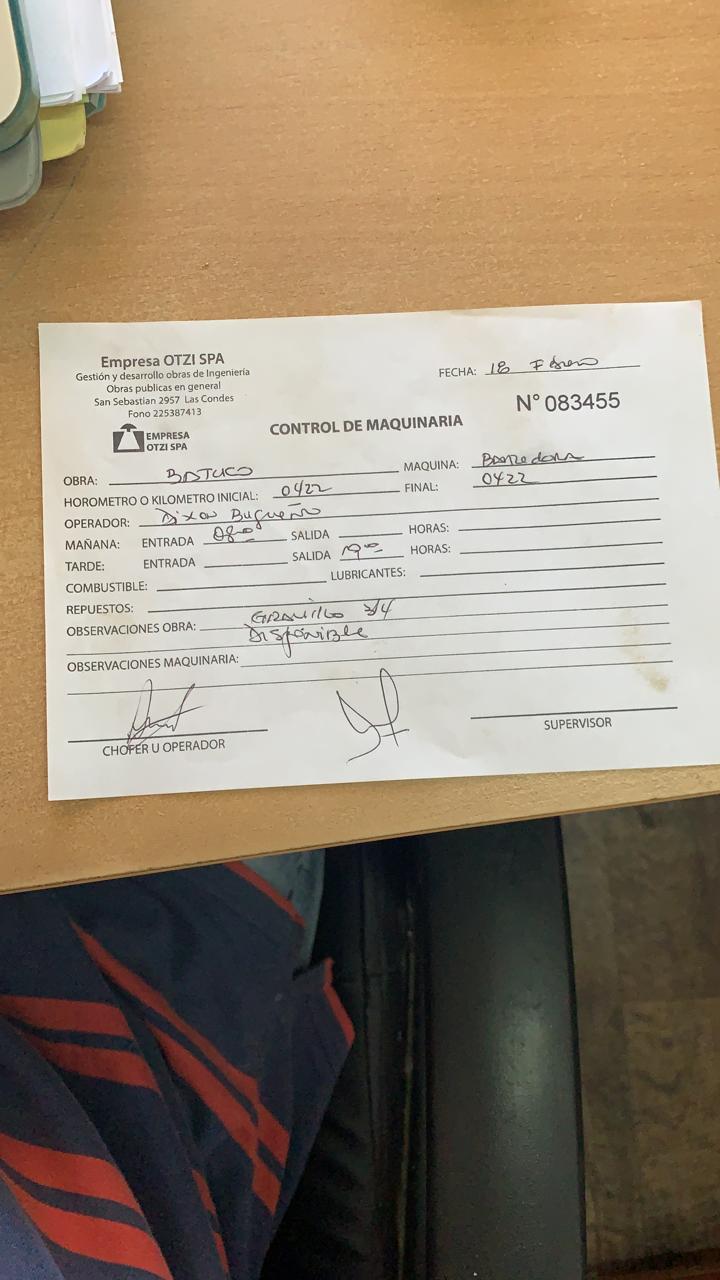 Empresa OTZI SPA
Gestión y desarrollo obras de Ingeniería
Obras publicas en general
San Sebastian 2957 Las Condes
Fono 225387413
EMPRESA
OTZI SPA
FECHA: 18 Febrero
N° 083455
CONTROL DE MAQUINARIA
OBRA: BATUCO MAQUINA: Barredora
HOROMETRO O KILOMETRO INICIAL: 0422 FINAL: 0422
OPERADOR: Dixon Bugueño
MAÑANA: ENTRADA 08:00 SALIDA HORAS:
TARDE: ENTRADA SALIDA 19:00 HORAS:
COMBUSTIBLE: LUBRICANTES:
REPUESTOS:
OBSERVACIONES OBRA: GRAVILLA 3/4
Disponible
OBSERVACIONES MAQUINARIA:
CHOFER U OPERADOR SUPERVISOR